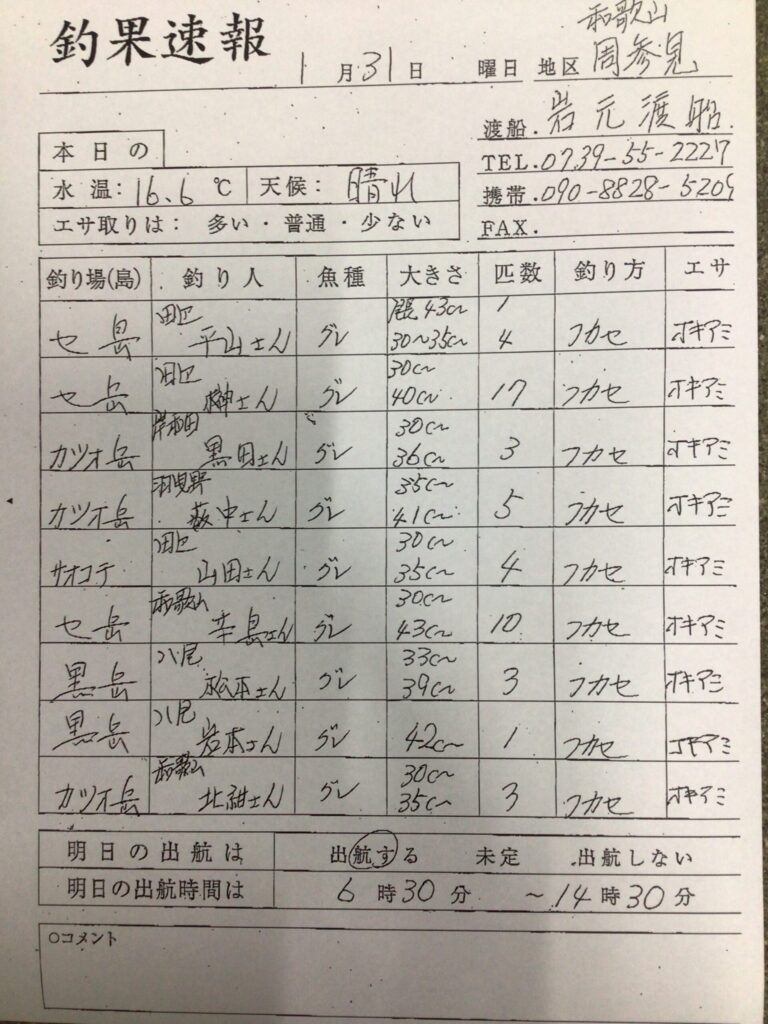 釣果速報
和歌山
1月31日 曜日 地区 周参見
渡船. 岩元渡船.
TEL. 0739-55-2227
携帯. 090-8828-5209
FAX.
本日の
水温: 16.6 ℃ 天候: 晴れ
エサ取りは: 多い・普通・少ない
釣り場(島) 釣り人 魚種 大きさ 匹数 釣り方 エサ
43㎝ 1
セ島 田辺 平山さん グレ 30〜35㎝ 4 フカセ オキアミ
田辺 30㎝
セ岳 榊さん グレ 40㎝ 17 フカセ オキアミ
岸和田 30㎝
カツオ岳 黒田さん グレ 36㎝ 3 フカセ オキアミ
羽曳野 35㎝
カツオ岳 薮中さん グレ 41㎝ 5 フカセ オキアミ
田辺 30㎝
サオコテ 山田さん グレ 35㎝ 4 フカセ オキアミ
和歌山 30㎝
セ岳 辛島さん グレ 43㎝ 10 フカセ オキアミ
八尾 33㎝
黒岳 松本さん グレ 39㎝ 3 フカセ オキアミ
八尾
黒岳 岩本さん グレ 42㎝ 1 フカセ オキアミ
和歌山 30㎝
カツオ岳 北紺さん グレ 35㎝ 3 フカセ オキアミ
明日の出航は 出航する 未定 出航しない
明日の出航時間は 6時30分 〜14時30分
○コメント